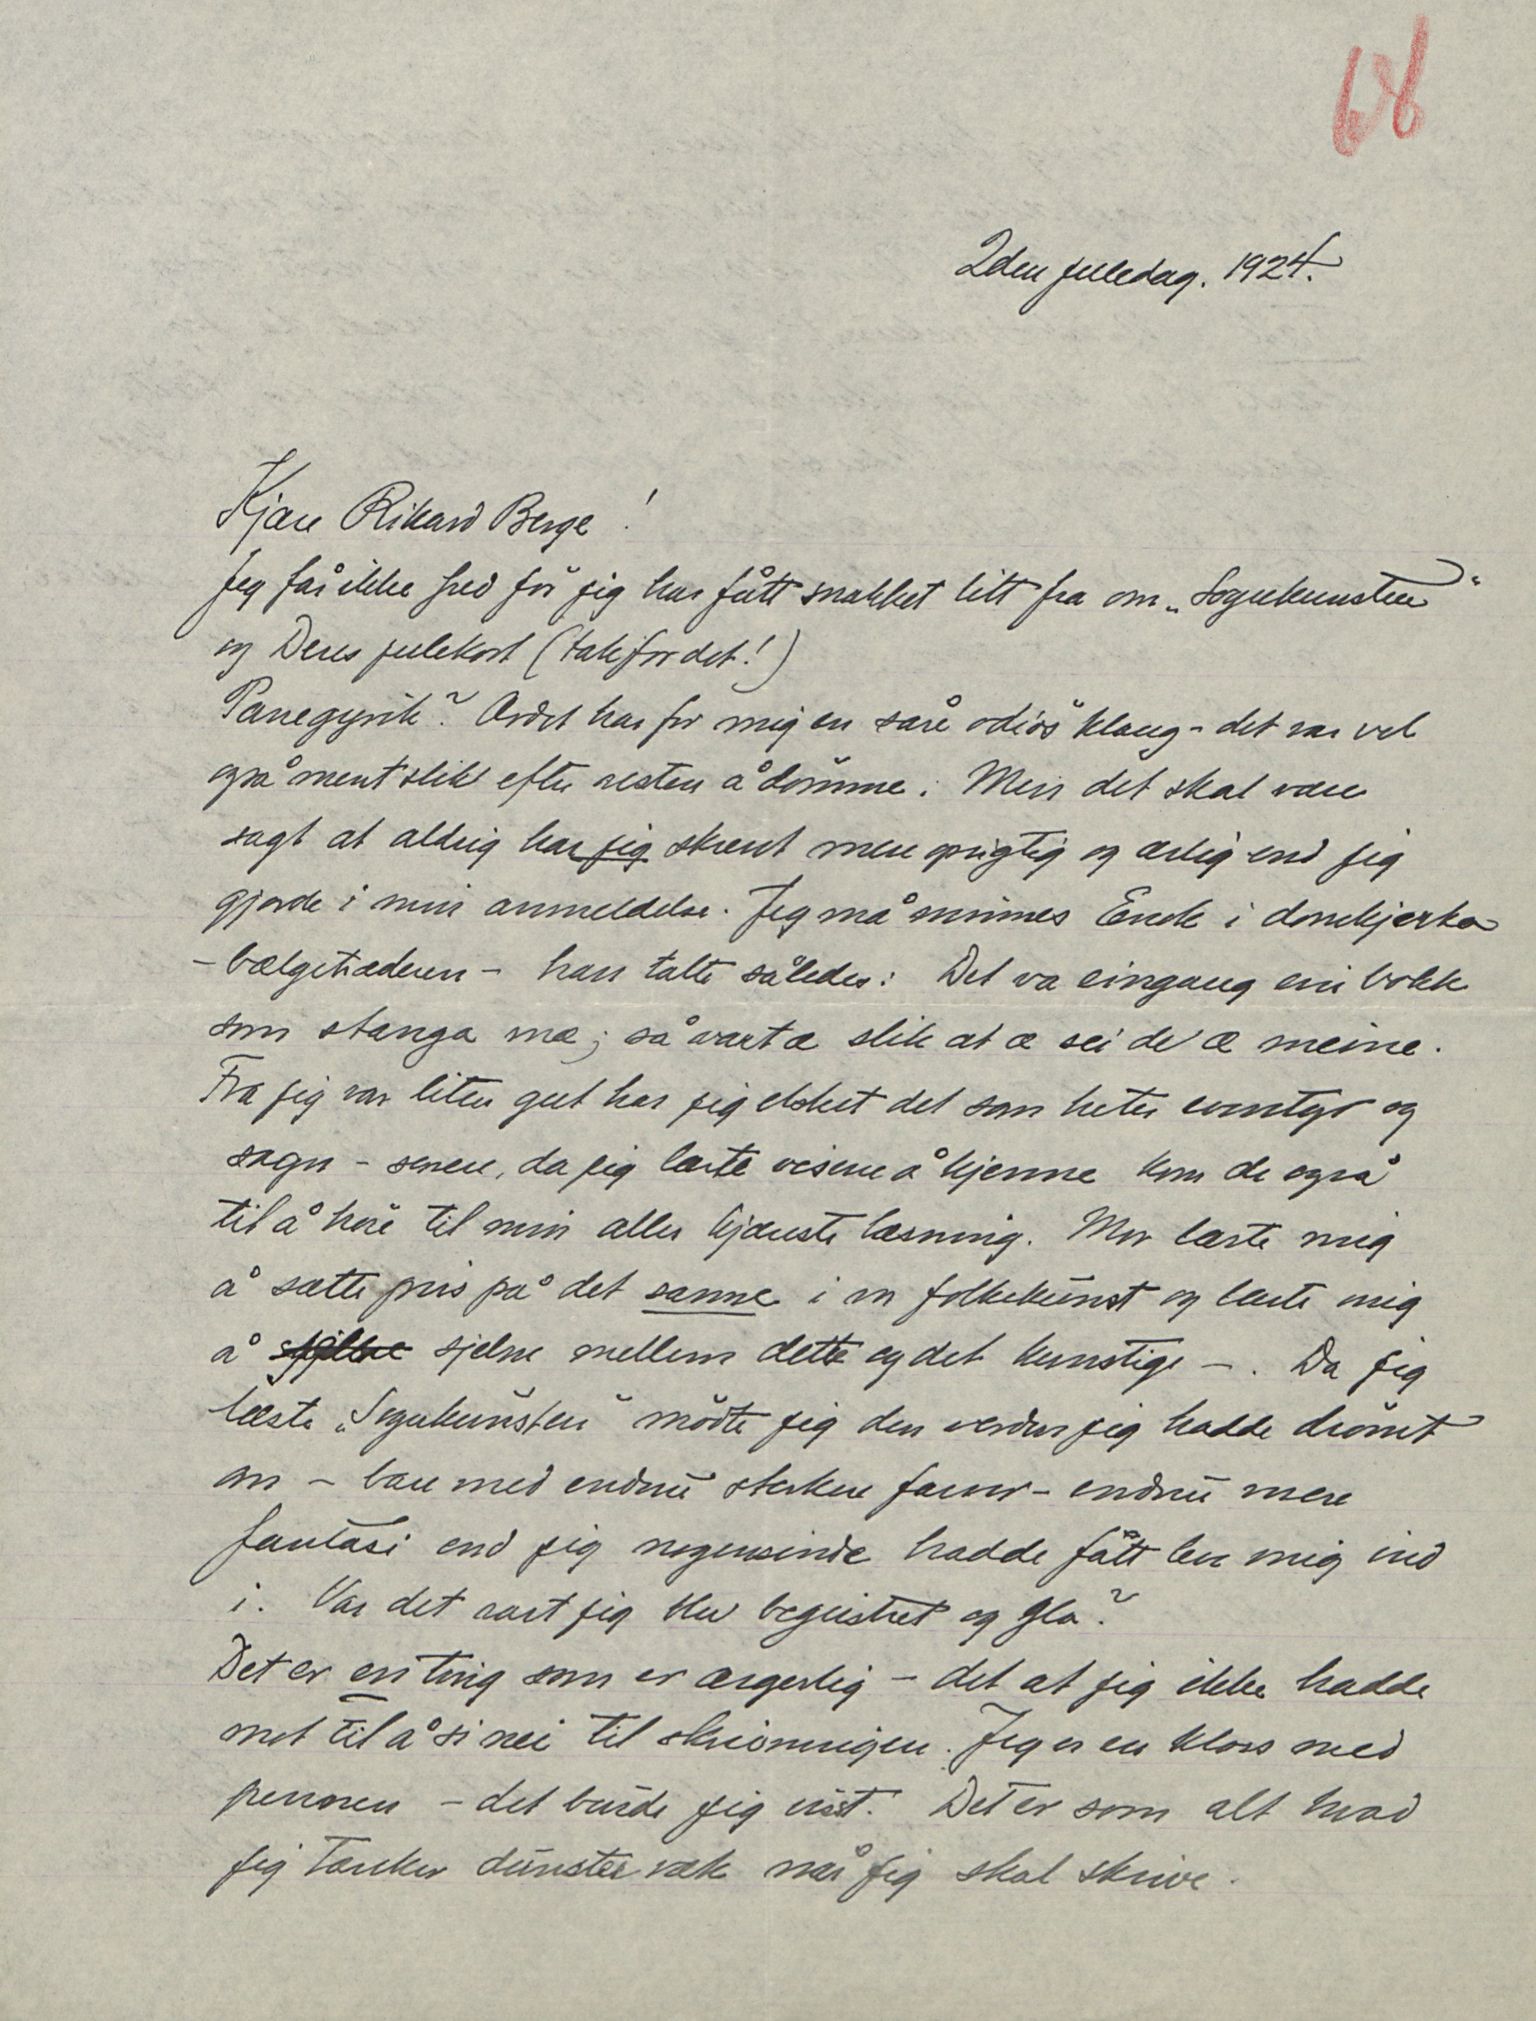 68
2den juledag. 1924.
Kjære Rikard Berge!
Jeg får ikke fred før jeg har fått snakket litt fra om „Sognekunsten"
og Deres julekort (takk for det!)
Panegyrik? Ordet har for mig en såre odiøs klang - det var vel
også ment slik efter resten å dømme. Men det skal være
sagt at aldrig har jeg skrevet mere oprigtig og ærlig end jeg
gjorde i min anmeldelse. Jeg må minnes Enok i domkjerka
- bælgetræderen - han talte således: Det va eingang ein bokk
som stanga mæ; så vart æ slik at æ sei de æ meine.
Fra jeg var liten gut har jeg elsket det som heter eventyr og
sagn - senere, da jeg lærte visene å kjenne kom de også
til å høre til min aller kjæreste læsning. Mor lærte mig
å sætte pris på det sanne i en folkekunst og lærte mig
å sjelne mellem dette og det kunstige - . Da jeg
læste „Sognekunsten" møtte jeg den verden jeg hadde drømt
om - bare med endnu sterkere farver - endnu mere
fantasi end jeg nogensinde hadde fått lev mig ind
i. Var det rart jeg blev begeistret og gla?
Det er en ting som er ærgerlig - det at jeg ikke hadde
mot til å si nei til skrivningen. Jeg er en kloss med
pennen - det burde jeg visst. Det er som alt hvad
jeg tænker dunster væk når jeg skal skrive.